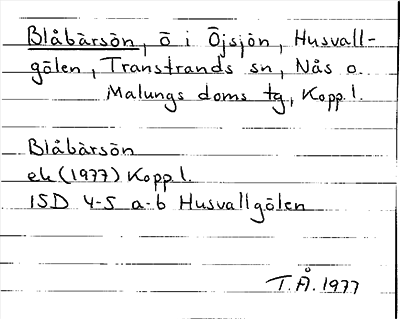 Blåbärsön, ö i Öjsjön, Husvall-
gölen, Transtrands sn, Nås o.
Malungs doms tg, Kopp. l.
Blåbärsön
ek (1977) Kopp. l.
15D 4-5 a-b Husvallgölen
T. Å. 1977